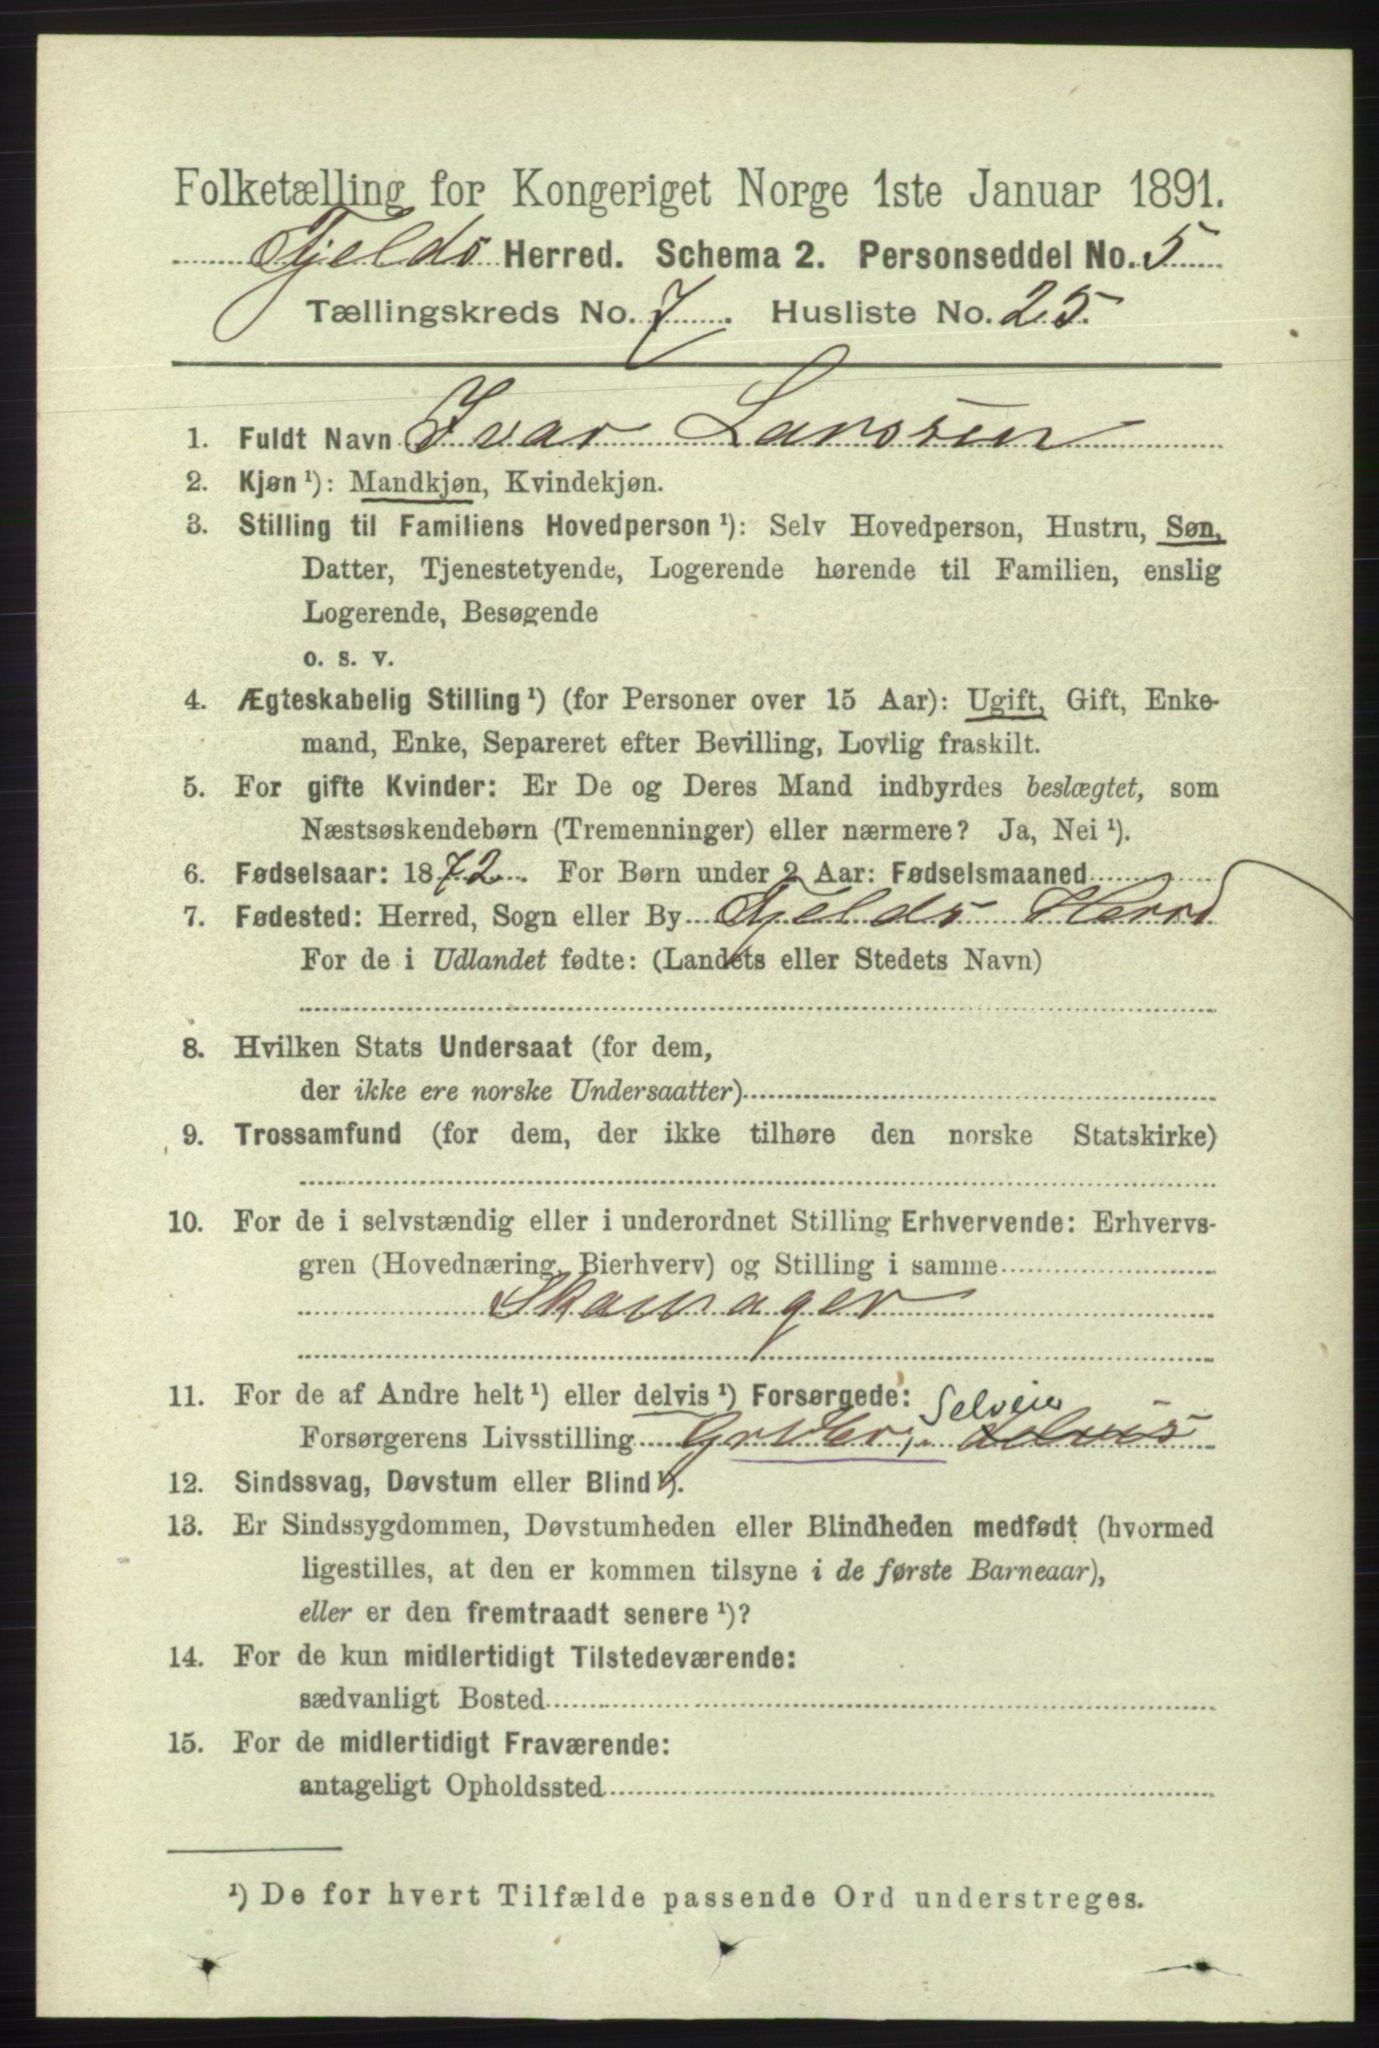 Folketælling for Kongeriget Norge 1ste Januar 1891.
Fjelds Herred. Schema 2. Personseddel No. 5
Tællingskreds No. 7. Husliste No. 25.
1. Fuldt Navn Ivar Larssen
2. Kjøn ¹): Mandkjøn, Kvindekjøn.
3. Stilling til Familiens Hovedperson ¹): Selv Hovedperson, Hustru, Søn,
Datter, Tjenestetyende, Logerende hørende til Familien, enslig
Logerende, Besøgende
o. s. v.
4. Ægteskabelig Stilling ¹) (for Personer over 15 Aar): Ugift, Gift, Enke-
mand, Enke, Separeret efter Bevilling, Lovlig fraskilt.
5. For gifte Kvinder: Er De og Deres Mand indbyrdes beslægtet, som
Næstsøskendebørn (Tremenninger) eller nærmere? Ja, Nei ¹).
6. Fødselsaar: 1872. For Børn under 2 Aar: Fødselsmaaned
7. Fødested: Herred, Sogn eller By Fjelds Herred
For de i Udlandet fødte: (Landets eller Stedets Navn)
8. Hvilken Stats Undersaat (for dem,
der ikke ere norske Undersaatter)
9. Trossamfund (for dem, der ikke tilhøre den norske Statskirke)
10. For de i selvstændig eller i underordnet Stilling Erhvervende: Erhvervs-
gren (Hovednæring, Bierhverv) og Stilling i samme
11. For de af Andre helt ¹) eller delvis ¹) Forsørgede: Selveier
Forsørgerens Livsstilling delvis
12. Sindssvag, Døvstum eller Blind ¹).
13. Er Sindssygdommen, Døvstumheden eller Blindheden medfødt (hvormed
ligestilles, at den er kommen tilsyne i de første Barneaar),
eller er den fremtraadt senere ¹)?
14. For de kun midlertidigt Tilstedeværende:
sædvanligt Bosted
15. For de midlertidigt Fraværende:
antageligt Opholdssted
¹) De for hvert Tilfælde passende Ord understreges.